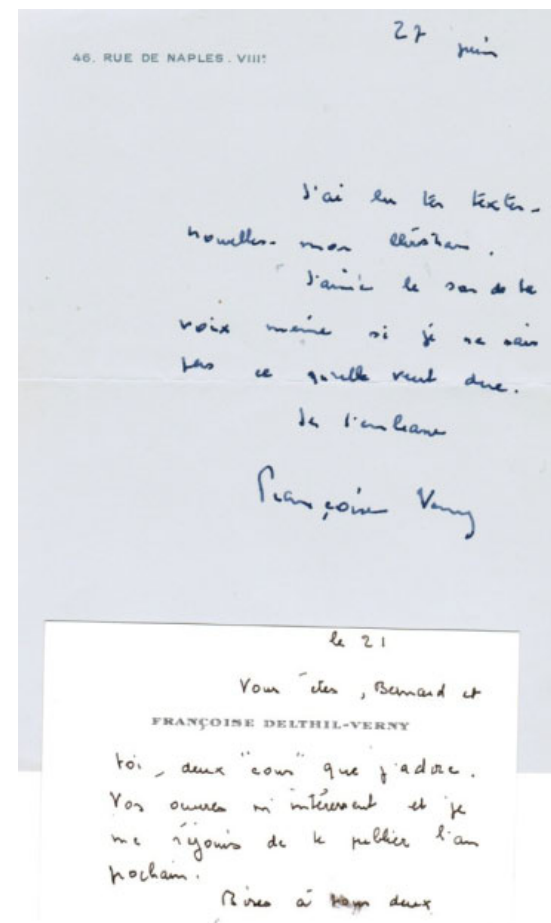 27 juin
46, RUE DE NAPLES. VIIIᵉ
J'ai lu tes textes-
nouvelles- mon Christian.
J'aime le son de ta
voix même si je ne sais
pas ce qu'elle veut dire.
Je t'embrasse
Françoise Verny
le 21
Vous êtes, Bernard et
FRANÇOISE DELTHIL-VERNY
toi, deux "cons" que j'adore.
Vos œuvres m'intéressent et je
me réjouis de te publier l'an
prochain.
Bises à vous deux